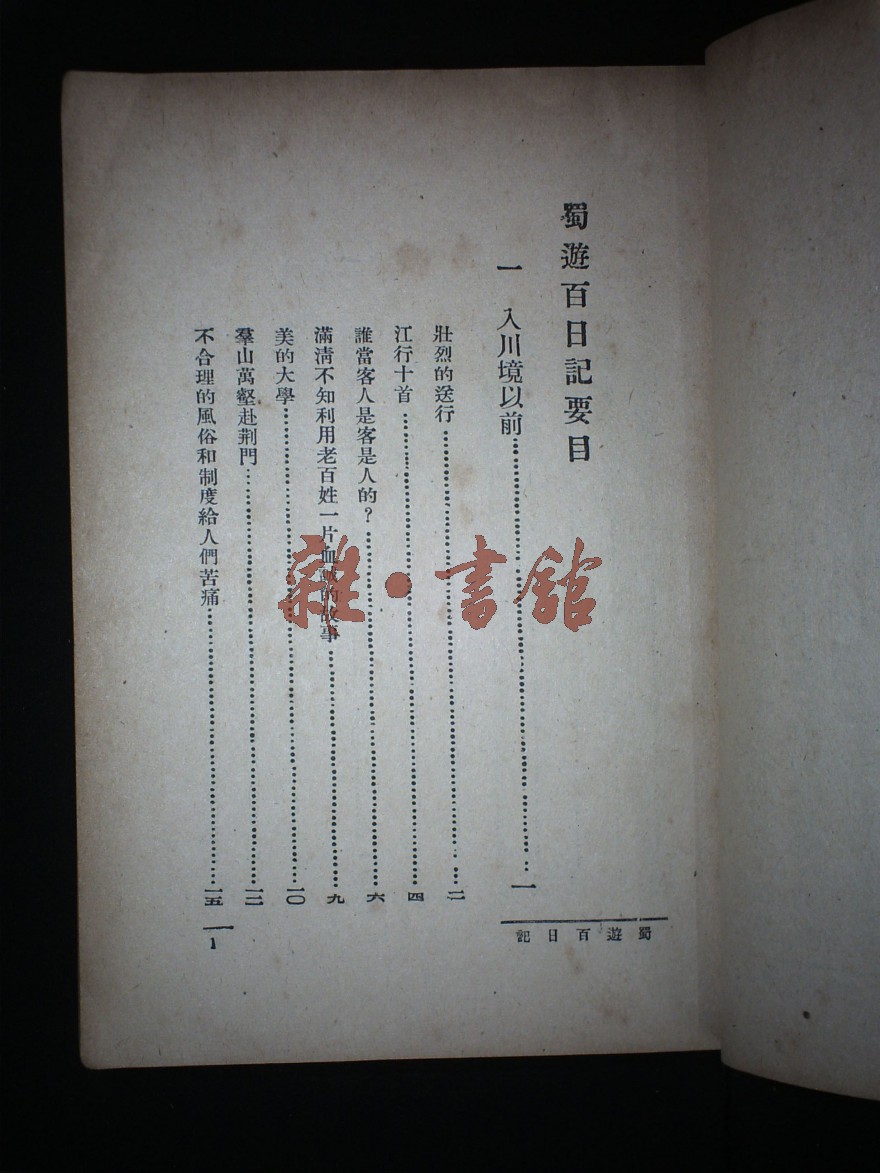 蜀遊百日記要目
一 入川境以前……一
壯烈的送行……二
江行十首……四
誰當客人是客是人的？……六
滿清不知利用老百姓一片血誠的故事……九
美的大學……一〇
羣山萬壑赴荆門……一二
不合理的風俗和制度給人們苦痛……一五
蜀遊百日記
1
雜·書館